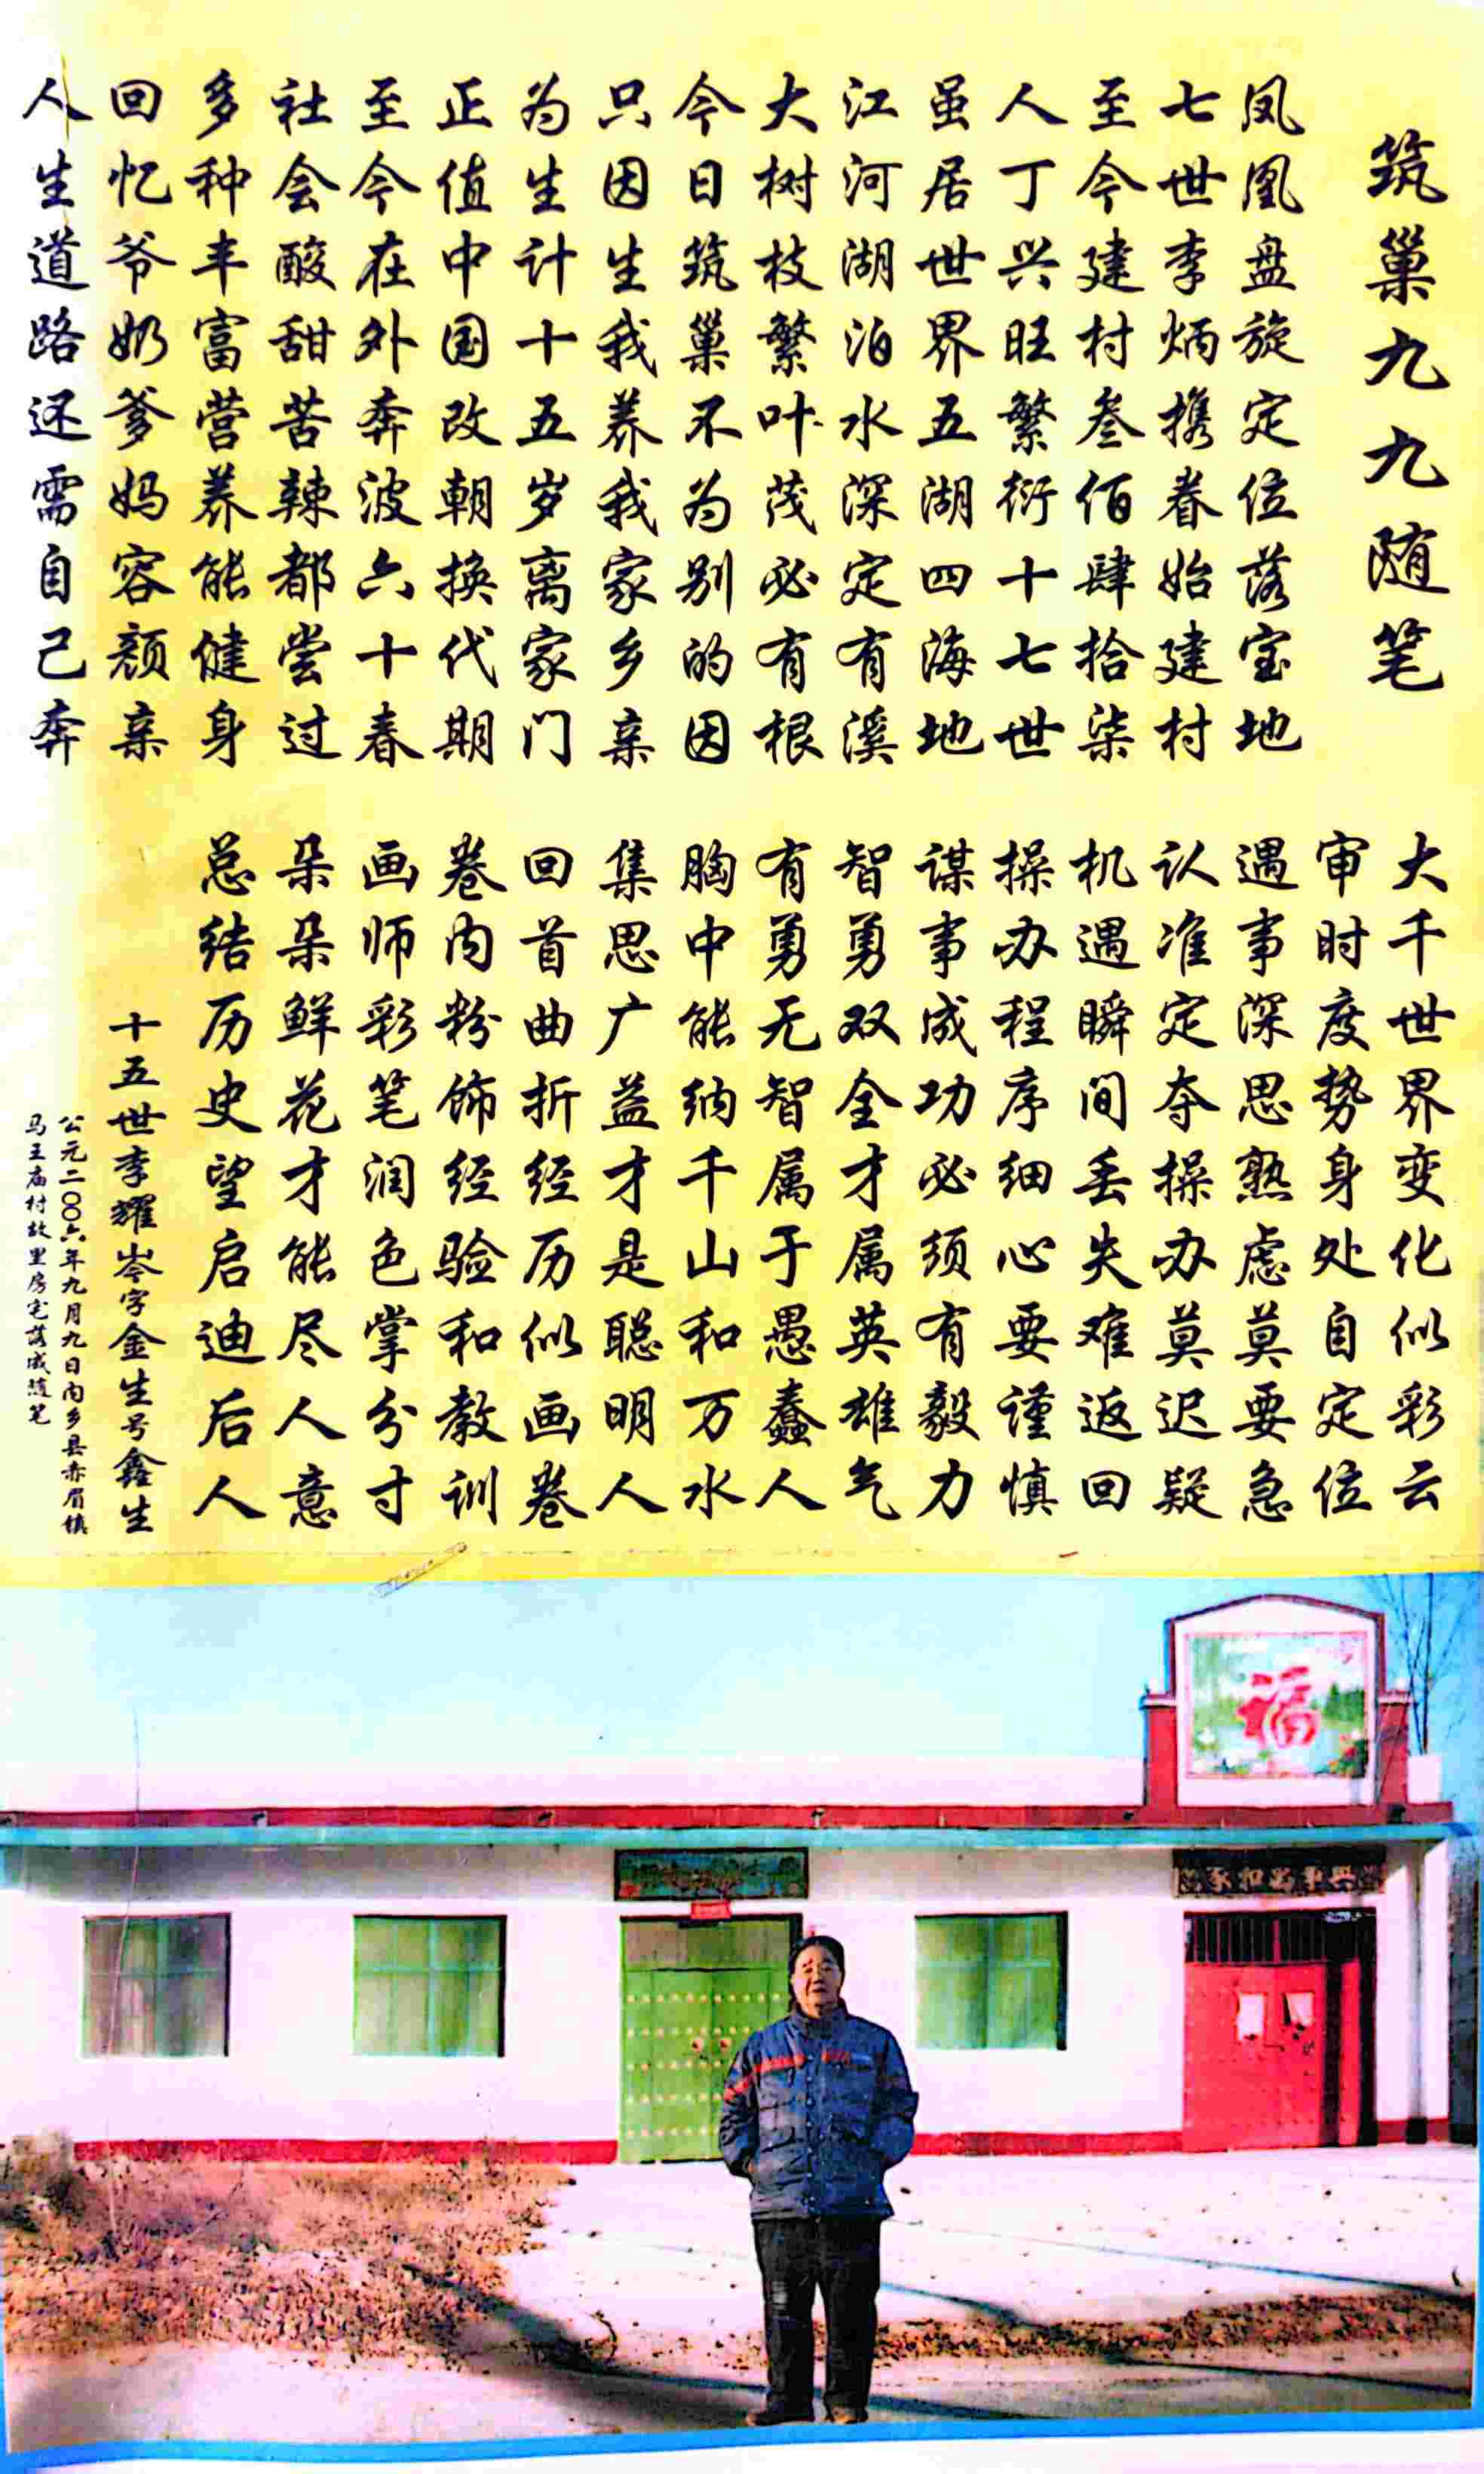 筑巢九九随笔
凤凰盘旋定位落宝地
七世李炳携眷始建村
至今建村叁佰肆拾柒
人丁兴旺繁衍十七世
虽居世界五湖四海地
江河湖泊水深定有溪
大树枝繁叶茂必有根
今日筑巢不为别的因
只因生我养我家乡亲
为生计十五岁离家门
正值中国改朝换代期
至今在外奔波六十春
社会酸甜苦辣都尝过
多种丰富营养能健身
回忆爷奶爹妈容颜亲
人生道路还需自己奔
大千世界变化似彩云
审时度势身处自定位
遇事深思熟虑莫要急
认准定夺操办莫迟疑
机遇瞬间丢失难返回
操办程序细心要谨慎
谋事成功必须有毅力
智勇双全才属英雄气
有勇无智属于愚蠢人
胸中能纳千山和万水
集思广益才是聪明人
回首曲折经历似画卷
卷内粉饰经验和教训
画师彩笔润色掌分寸
朵朵鲜花才能尽人意
总结历史望启迪后人
十五世李耀岑字金生号鑫生
公元二〇〇六年九月九日内乡县赤眉镇
马王庙村故里房宅落成随笔
福
家和万事兴